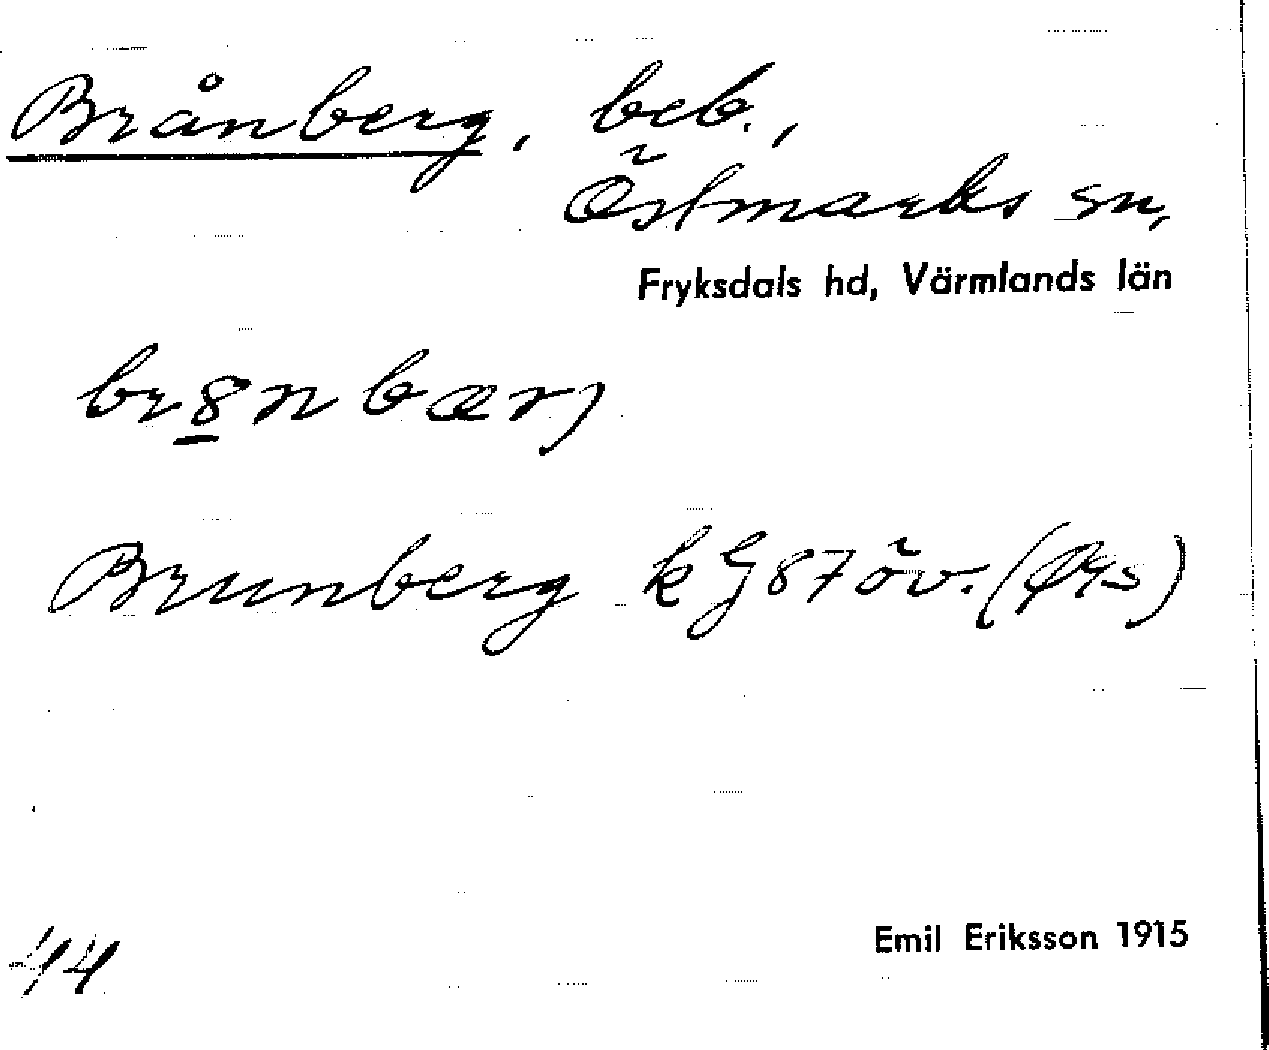 Brånberg, beb.,
Östmarks sn,
Fryksdals hd, Värmlands län
br8nbær,
Brunberg k G 87 öv.
Emil Eriksson 1915
44